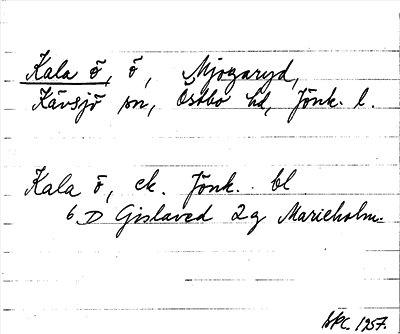 Kala ö, ö, Mjogaryd,
Kävsjö sn, Östbo hd, Jönk. l.
Kala ö, ek. Jönk. bl
6 D Gislaved 2g Marieholm.
1957.